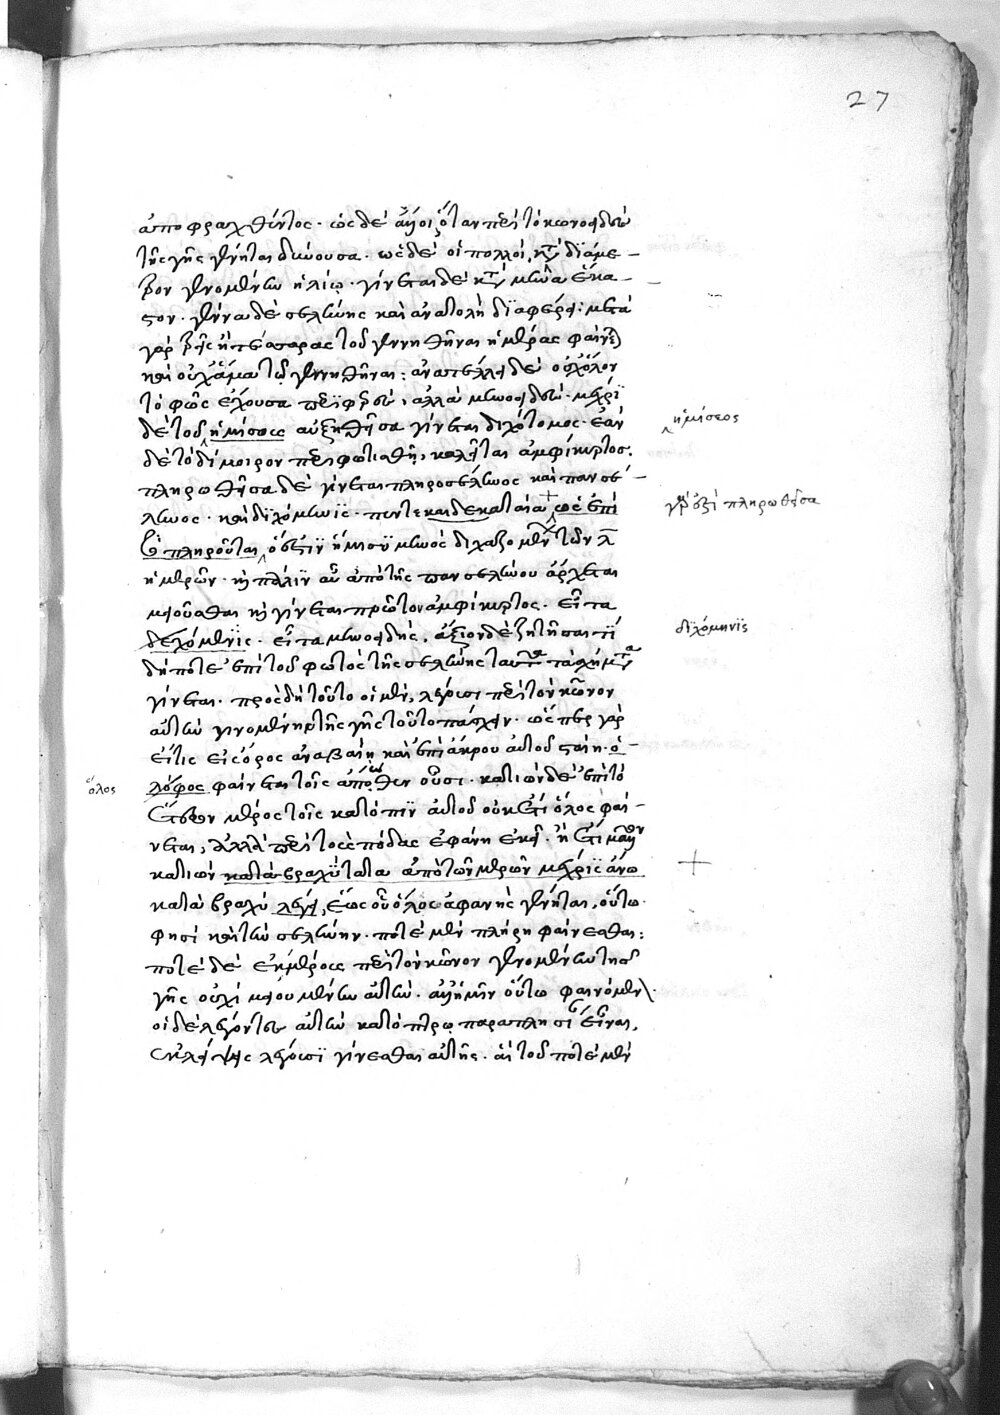 27
ἀποφραχθέντος. ὡς δὲ ἄλλοι ὅταν περὶ τὸ κωνοειδὲς
τῆς γῆς γένηται δύνουσα. ὡς δὲ οἱ πολλοί, κατὰ διάμε-
τρον γινομένων ἡλίῳ. γίνεται δὲ κατὰ μῆνα ἕκα-
στον. γέννα δὲ σελήνης καὶ ἀνατολὴ διαφέρει. μετὰ
γὰρ τρεῖς ἢ τέσσαρας τοῦ γεννηθῆναι ἡμέρας φαίνεται
καὶ οὐχ ἅμα τῷ γεννηθῆναι: ἀνατέλλει δὲ οὐχ ὅλον
τὸ φῶς ἔχουσα περιφερὲς, ἀλλὰ μηνοειδές. μέχρι
δὲ τοῦ ἡμίσους αὐξηθεῖσα γίνεται διχότομος. ἐὰν
ἡμίσεος
δὲ τὸ δίμοιρον περιφωτισθῇ, καλεῖται ἀμφίκυρτος.
πληρωθεῖσα δὲ γίνεται πληροσέληνος καὶ πανσέ-
ληνος. καὶ διχόμηνις. πεντεκαιδεκαταία ὡς ἐπὶ
ὀξὺ πληρωθεῖσα
πληροῦται, ὅ ἐστιν ἥμισυ μηνὸς διχαζομένου τῶν λ
ἡμερῶν. καὶ πάλιν αὖ ἀπὸ τῆς πανσελήνου ἄρχεται
μειοῦσθαι καὶ γίνεται πρῶτον ἀμφίκυρτος. εἶτα
δεχόμηνις. εἶτα μηνοειδής. ἄξιον δὲ ζητῆσαι τί
διχόμηνις
δήποτε ἐπὶ τοῦ φωτὸς τῆς σελήνης ταῦτα τὰ σχήματα
γίνεται. πρὸς δὴ τοῦτο οἱ μὲν, λέγουσι περὶ τὸν κῶνον
αὐτὴν γινομένην τῆς γῆς τοῦτο πάσχειν. ὥσπερ γὰρ
εἴ τις εἰς ὄρος ἀναβαίη καὶ ἐπὶ ἄκρου αὐτοῦ σταίη. ὁ-
ὅλος
λόφος φαίνεται τοῖς ἀπόθεν οὖσι. κατιὼν δὲ ἐπὶ τὸ
ἕτερον μέρος τοῖς κατόπιν αὐτοῦ οὐκέτι ὅλος φαί-
νεται, ἀλλὰ περὶ τοὺς πόδας ἐφάνη ἐκεῖ. ἢ ἔτι μᾶλλον
κατιὼν κατὰ βραχύτατα ἀπὸ τῶν μερῶν μέχρις ἄνω
κατὰ βραχὺ λήγει, ἕως οὗ ὅλος ἀφανὴς γένηται, οὕτω
φησὶ καὶ τὴν σελήνην. ποτὲ μὲν πλήρη φαίνεσθαι:
ποτὲ δὲ ἐκ μέρους περὶ τὸν κῶνον γινομένην τῆς
γῆς οὐχὶ μειουμένην αὐτήν. ἀλλ' ἡμῖν οὕτω φαινομένην.
οἱ δὲ λέγοντες αὐτὴν κατόπτρῳ παραπλησίαν εἶναι,
λέγουσι γίνεσθαι αὐτῆς. ἀπὸ τοῦ ποτὲ μὲν